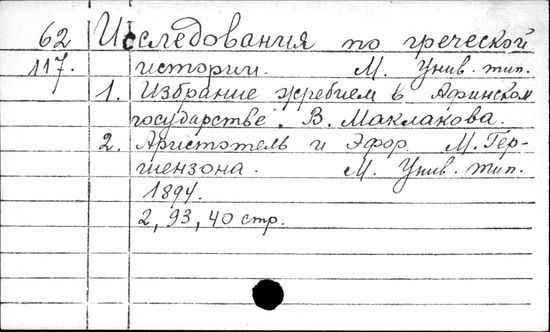 62 Исследования по греческой
117. истории. М. Унив. тип.
1. Избрание жребием в Афинском
государстве. В. Маклакова.
2. Аристотель и Эфор. М. Гер-
шензона. М. Унив. тип.
1894.
2, 93, 40 стр.